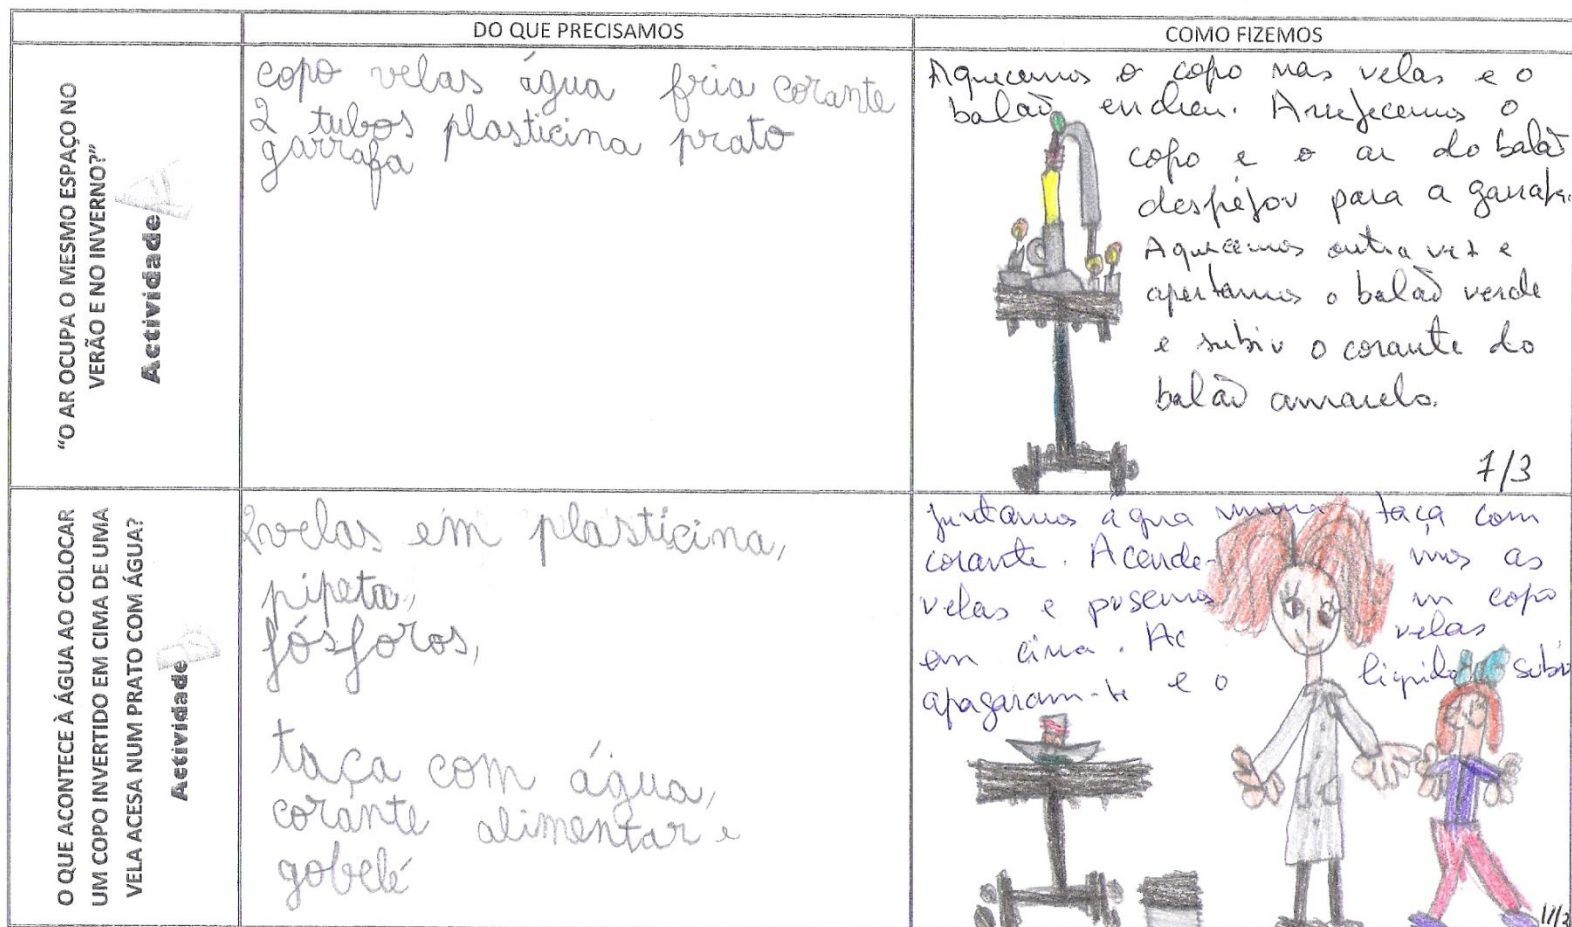 DO QUE PRECISAMOS
COMO FIZEMOS
"O AR OCUPA O MESMO ESPAÇO NO
VERÃO E NO INVERNO?"
Actividade
copo velas água fria corante
2 tubos plasticina prato
garrafa
Aquecemos o copo nas velas e o
balão encheu. Arrefecemos o
copo e o ar do balão
despejou para a garrafa.
Aquecemos outra vez e
apertamos o balão verde
e subiu o corante do
balão amarelo.
7/3
O QUE ACONTECE À ÁGUA AO COLOCAR
UM COPO INVERTIDO EM CIMA DE UMA
VELA ACESA NUM PRATO COM ÁGUA?
Actividade
2 velas em plasticina,
pipeta,
fósforos,
taça com água,
corante alimentar e
gobelé
Juntamos água numa taça com
corante. Acende- mos as
velas e pusemos um copo
em cima. velas
apagaram-se e o liquido subiu